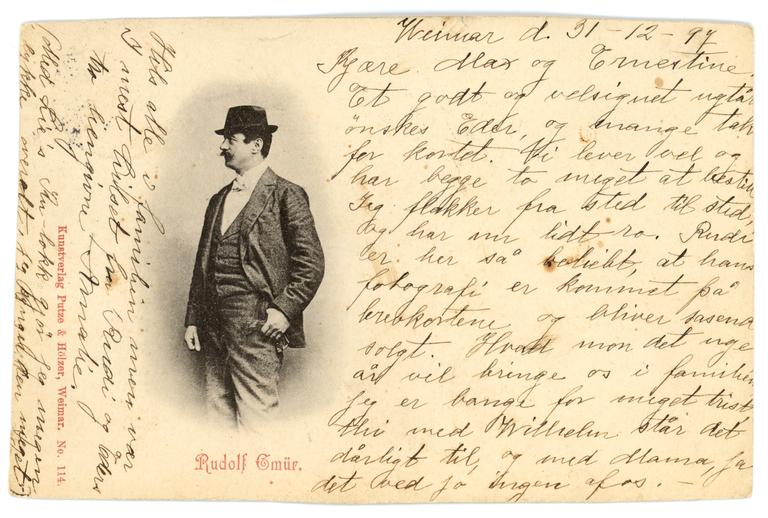 Weimar d. 31-12-97
Kjære Max og Ernestine
Et godt og velsignet nytår
ønskes Eder, og mange tak
for kortet. Vi lever vel og
har begge to meget at bestille
Jeg flakker fra sted til sted,
og har nu lidt ro. Rudi
er her så beliebt, at hans
fotografi er kommet på
brevkortene og bliver
solgt. Hvad mon det nye
år vil bringe os i familien
jeg er bange for meget trist
thi med Wilhelm står det
dårligt til, og med Mama, ja
det ved jo ingen af os. —
Hils alle i familien men vær
I mest hilset fra Rudi og Eders
hengivne Amalie.
Rudolf Gmür.
Kunstverlag Putze & Hölzer, Weimar. No. 114.